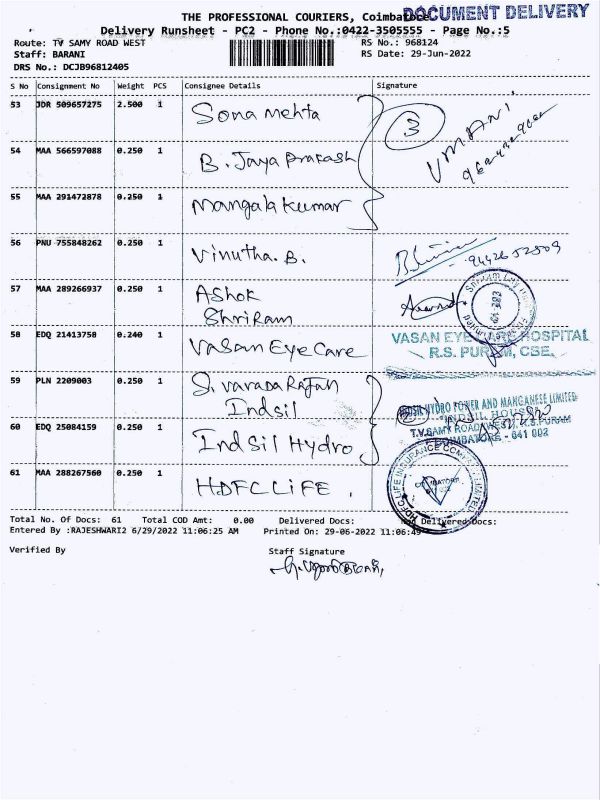 DOCUMENT DELIVERY
THE PROFESSIONAL COURIERS, Coimbatore
Delivery Runsheet - PC2 - Phone No.:0422-3505555 - Page No.:5
Route: TV SAMY ROAD WEST
RS No.: 968124
Staff: BARANI
RS Date: 29-Jun-2022
DRS No.: DCJB96812405
S No Consignment No Weight PCS Consignee Details Signature
53 JDR 509657275 2.500 1 Sona Mehta
3
V MANI
54 MAA 566597088 0.250 1 B. Jaya Prakash
55 MAA 291472878 0.250 1 Mangala Kumar
56 PNU 755848262 0.250 1 Vinutha. B.
57 MAA 289266937 0.250 1 Ashok
Shri Ram
58 EDQ 21413758 0.240 1 Vasan Eye Care
VASAN EYE CARE HOSPITAL
R.S. PURAM, CBE.
59 PLN 2209003 0.250 1 S. Varada Rajan
Indsil
INDSIL HYDRO POWER AND MANGANESE LIMITED
INDSIL HOUSE
T.V.SAMY ROAD (WEST), R.S.PURAM
COIMBATORE - 641 002
60 EDQ 25084159 0.250 1 Indsil Hydro
61 MAA 288267560 0.250 1 HDFC LIFE .
HDFC LIFE INSURANCE COMPANY LIMITED
Total No. Of Docs: 61 Total COD Amt: 0.00 Delivered Docs: Non Delivered Docs:
Entered By :RAJESHWARI2 6/29/2022 11:06:25 AM Printed On: 29-06-2022 11:06:49
Verified By Staff Signature